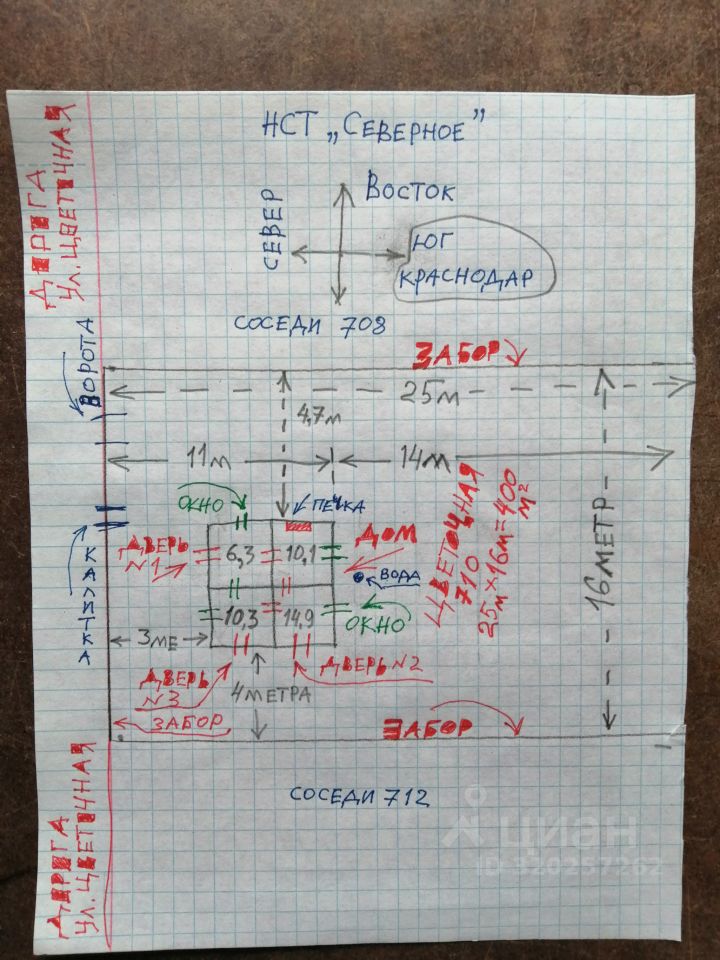 НСТ „СЕВЕРНОЕ”
ДОРОГА
УЛ. ЦВЕТОЧНАЯ
СЕВЕР
ВОСТОК
ЮГ
КРАСНОДАР
СОСЕДИ 708
ВОРОТА
ЗАБОР
25м
4,7м
11м
14м
ОКНО
ПЕЧКА
ДОМ
ДВЕРЬ
№1
6,3
10,1
ВОДА
10,3
14,9
ОКНО
ЦВЕТОЧНАЯ
710
25м × 16м = 400
м²
16 МЕТР
КАЛИТКА
3МЕ
ДВЕРЬ
№3
4 МЕТРА
ДВЕРЬ №2
ЗАБОР
ЗАБОР
СОСЕДИ 712
ДОРОГА
УЛ. ЦВЕТОЧНАЯ
циан